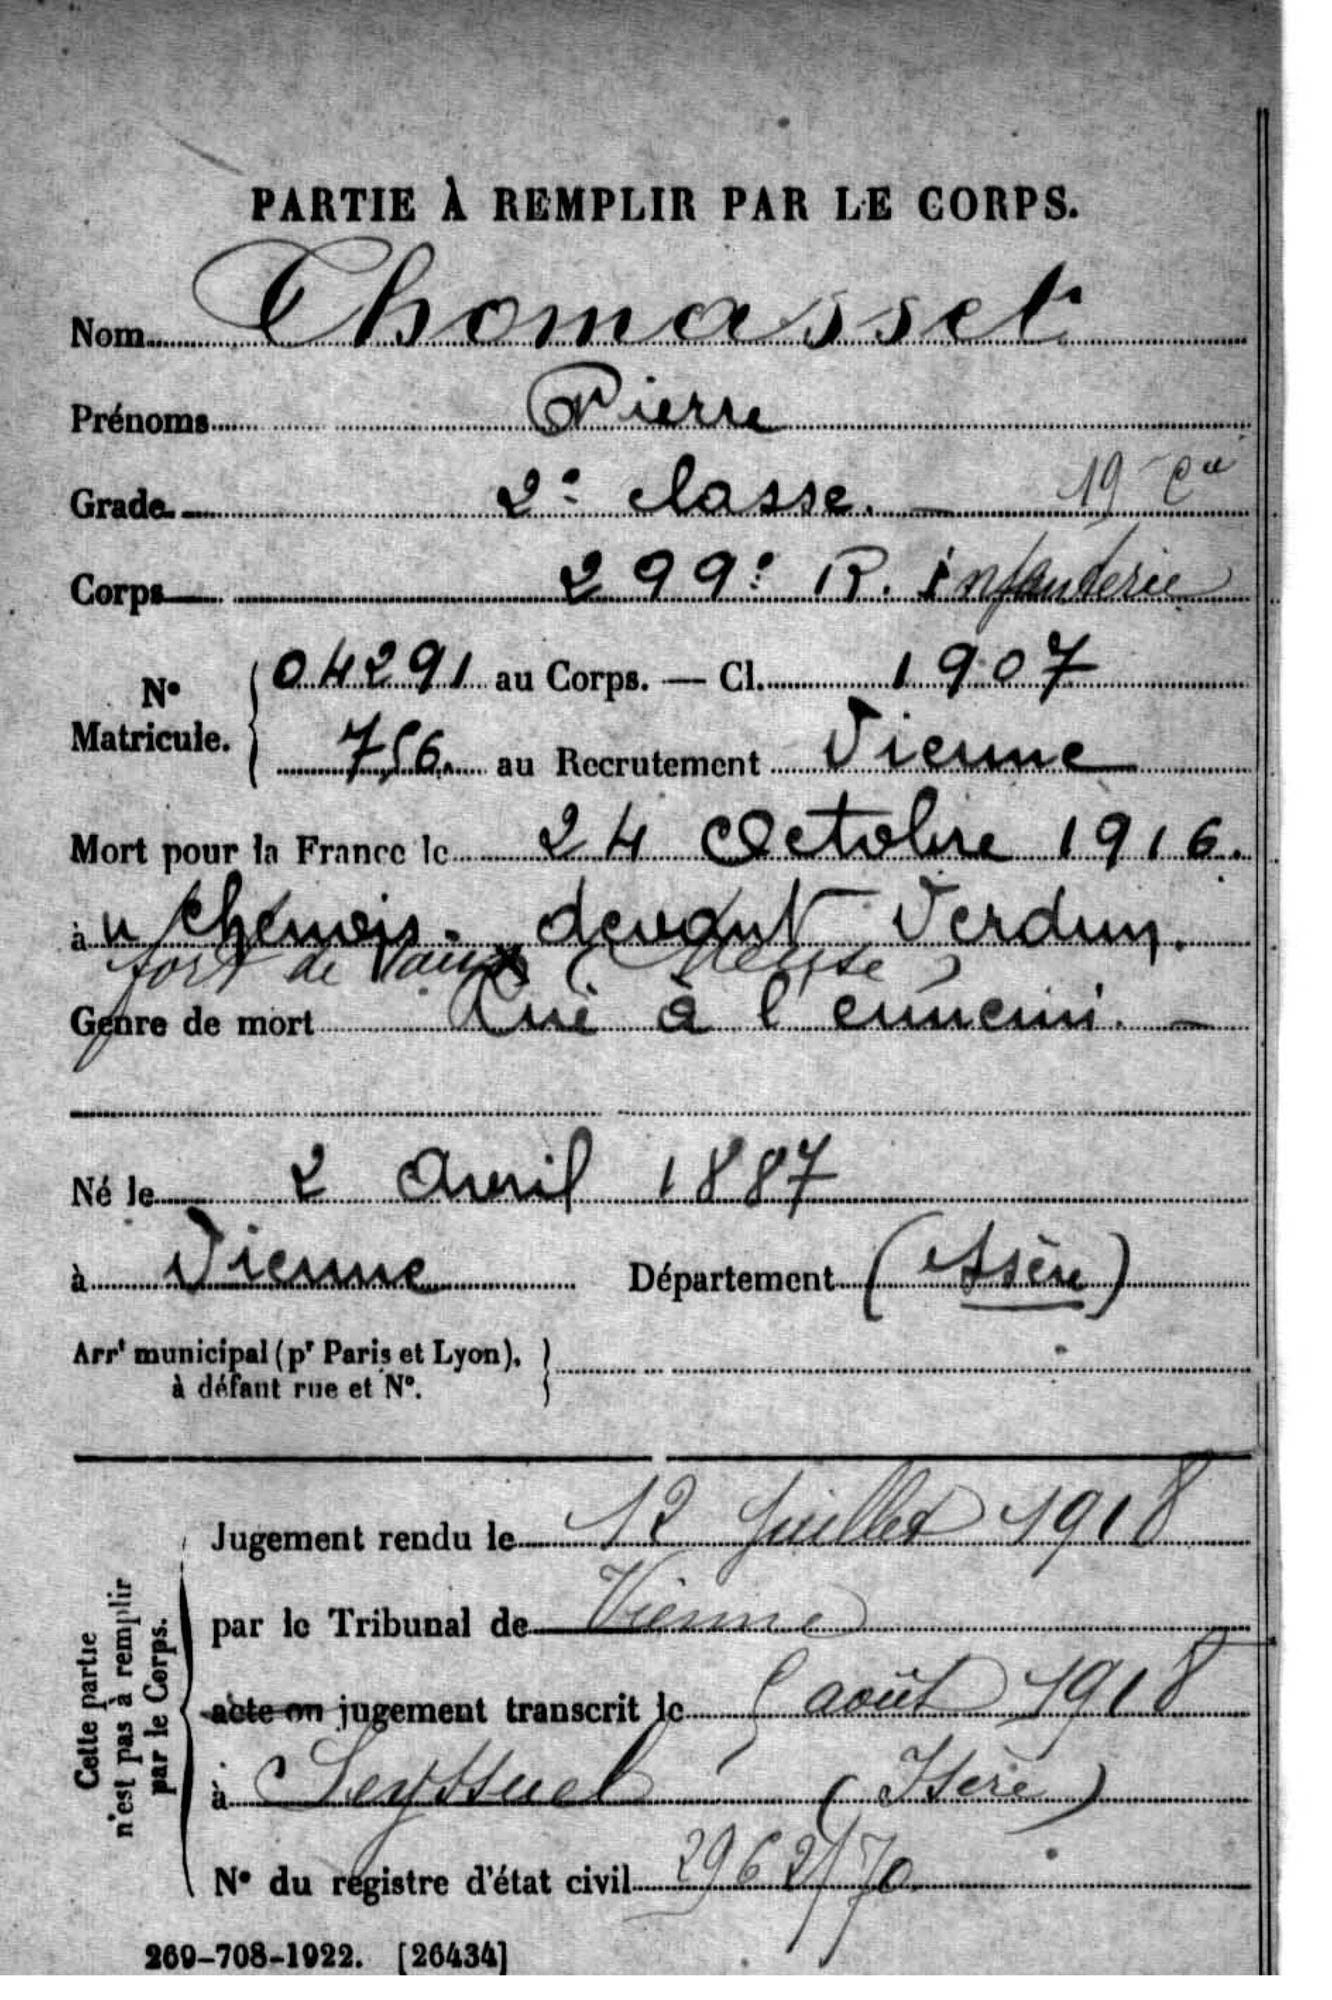 PARTIE À REMPLIR PAR LE CORPS.
Nom Thomasset
Prénoms Pierre
Grade 2e classe. — 19e Cie
Corps 299e R. infanterie
No Matricule. 04291 au Corps. — Cl. 1907
756. au Recrutement Vienne
Mort pour la France le 24 Octobre 1916.
à devant Verdun.
fort de Vaux (Meuse)
Genre de mort Tué à l'ennemi. —
Né le 2 Avril 1887
à Vienne Département (Isère)
Arrt municipal (pr Paris et Lyon),
à défaut rue et No.
Cette partie
n'est pas à remplir
par le Corps.
Jugement rendu le 12 juillet 1918
par le Tribunal de Vienne
acte ou jugement transcrit le 5 août 1918
à Seyssuel (Isère)
No du registre d'état civil
269-708-1922. [26434]